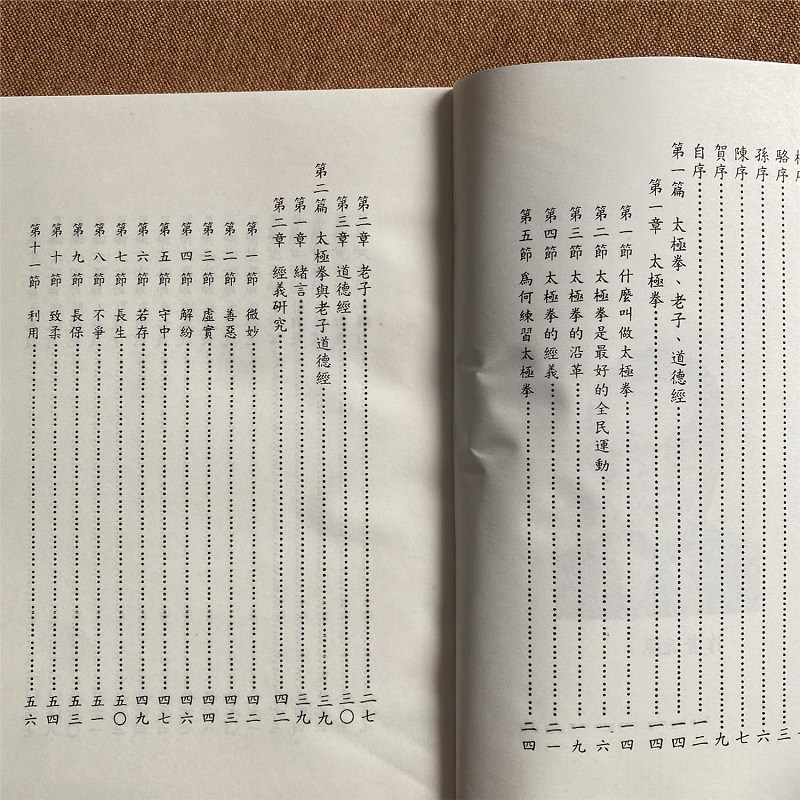 駱序……三
孫序……六
陳序……七
賀序……九
自序……一二
第一篇 太極拳、老子、道德經……一四
第一章 太極拳……一四
第一節 什麼叫做太極拳……一四
第二節 太極拳是最好的全民運動……一六
第三節 太極拳的沿革……一九
第四節 太極拳的經義……二一
第五節 爲何練習太極拳……二四
第二章 老子……二七
第三章 道德經……三〇
第二篇 太極拳與老子道德經……三九
第一章 緒言……三九
第二章 經義研究……四二
第一節 微妙……四二
第二節 善惡……四三
第三節 虛實……四四
第四節 解紛……四六
第五節 守中……四七
第六節 若存……四九
第七節 長生……五〇
第八節 不爭……五一
第九節 長保……五三
第十節 致柔……五四
第十一節 利用……五六